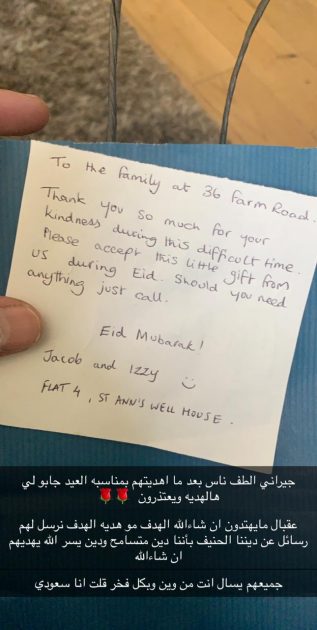 To the family at 36 Farm Road.
Thank you so much for your
kindness during this difficult time.
Please accept this little gift from
us during Eid. Should you need
anything just call.
Eid Mubarak!
Jacob and Izzy :)
FLAT 4, ST ANN'S WELL HOUSE.
جيراني الطف ناس بعد ما اهديتهم بمناسبه العيد جابو لي
هالهديه ويعتذرون 🌹🌹
عقبال مايهتدون ان شاءالله الهدف مو هديه الهدف نرسل لهم
رسائل عن ديننا الحنيف بأننا دين متسامح ودين يسر الله يهديهم
ان شاءالله
جميعهم يسال انت من وين وبكل فخر قلت انا سعودي